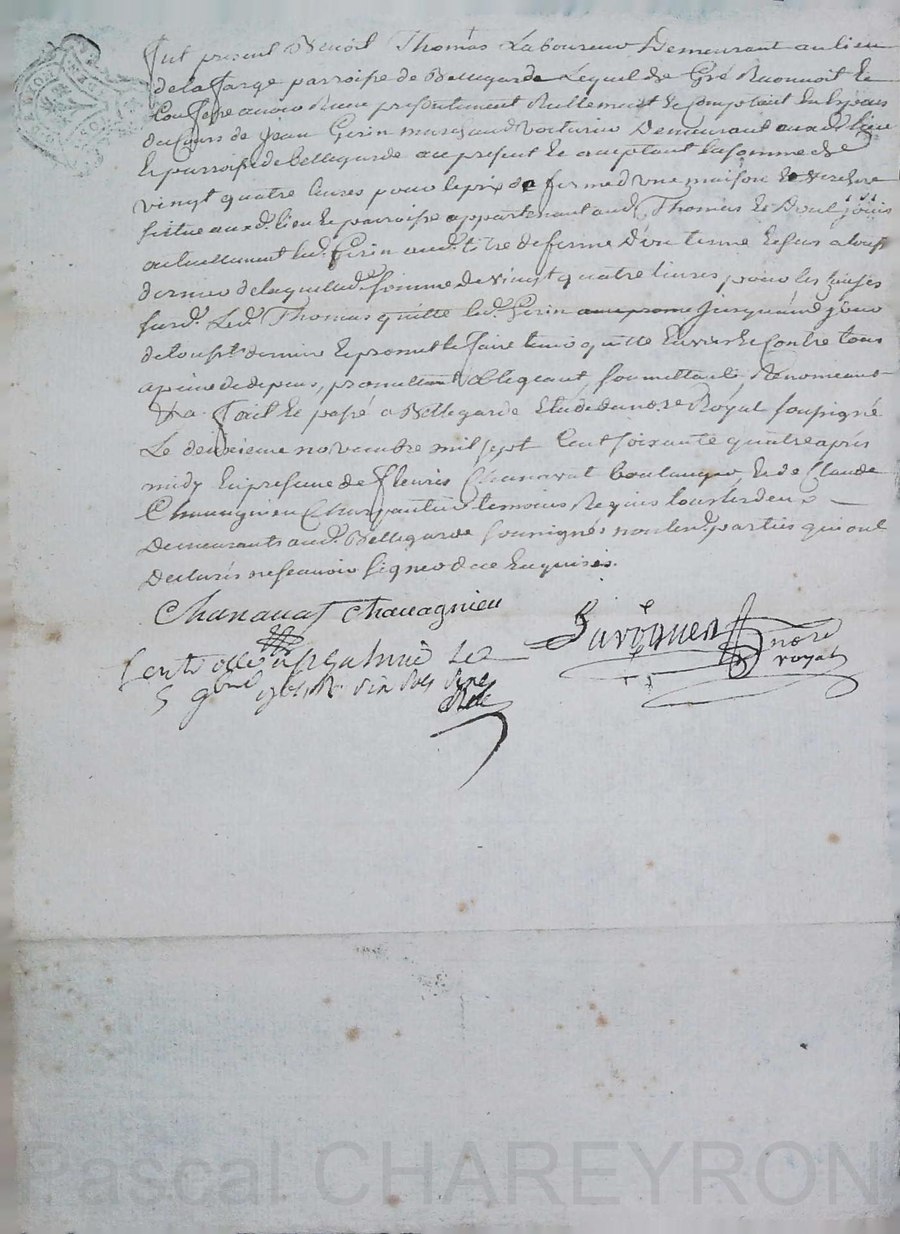 fut present Benoit Thomas Laboureur Demeurant au lieu
de la farge parroisse de Bellegarde Lequel de Gré Reconnoit et
Confesse avoir Receu presentement Reellement et Comptant En Especes
du Cours de Jean Gerin marchand voiturier Demeurant aud. lieu
Et parroisse de bellegarde au present Et acceptant La somme de
vingt quatre livres pour le prix de ferme d'une maison et verchere
sittue aud. lieu Et parroisse appartenant aud. Thomas Et Dont jouis
actuellement led. Gerin aud. titre de ferme D'un terme Echus a tous
dernier de laquelle d. somme de vingt quatre livres pour les causes
surd. Led. Thomas quitte led. Gerin jusqu'aud. jour
de touss. dernier Et promet le faire tenir quitte Envers Et Contre tous
a peine de depens, promettant obligeant soumettant, Renonceant
fait Et passé a Bellegarde Etude du no.re Royal soussigné
Le deuxieme novembre mil sept Cent soixante quatre après
midy En presence de fleuris Chanavat boulanger, Et de Claude
Chavagnieu Charpantier temoins Requis tous les deux
Demeurants aud. Bellegarde soussignés non led. parties qui ont
Declarés ne scavoir signer de ce Enquises.
Chanavat Chavagnieu
no.re
royal
le
5